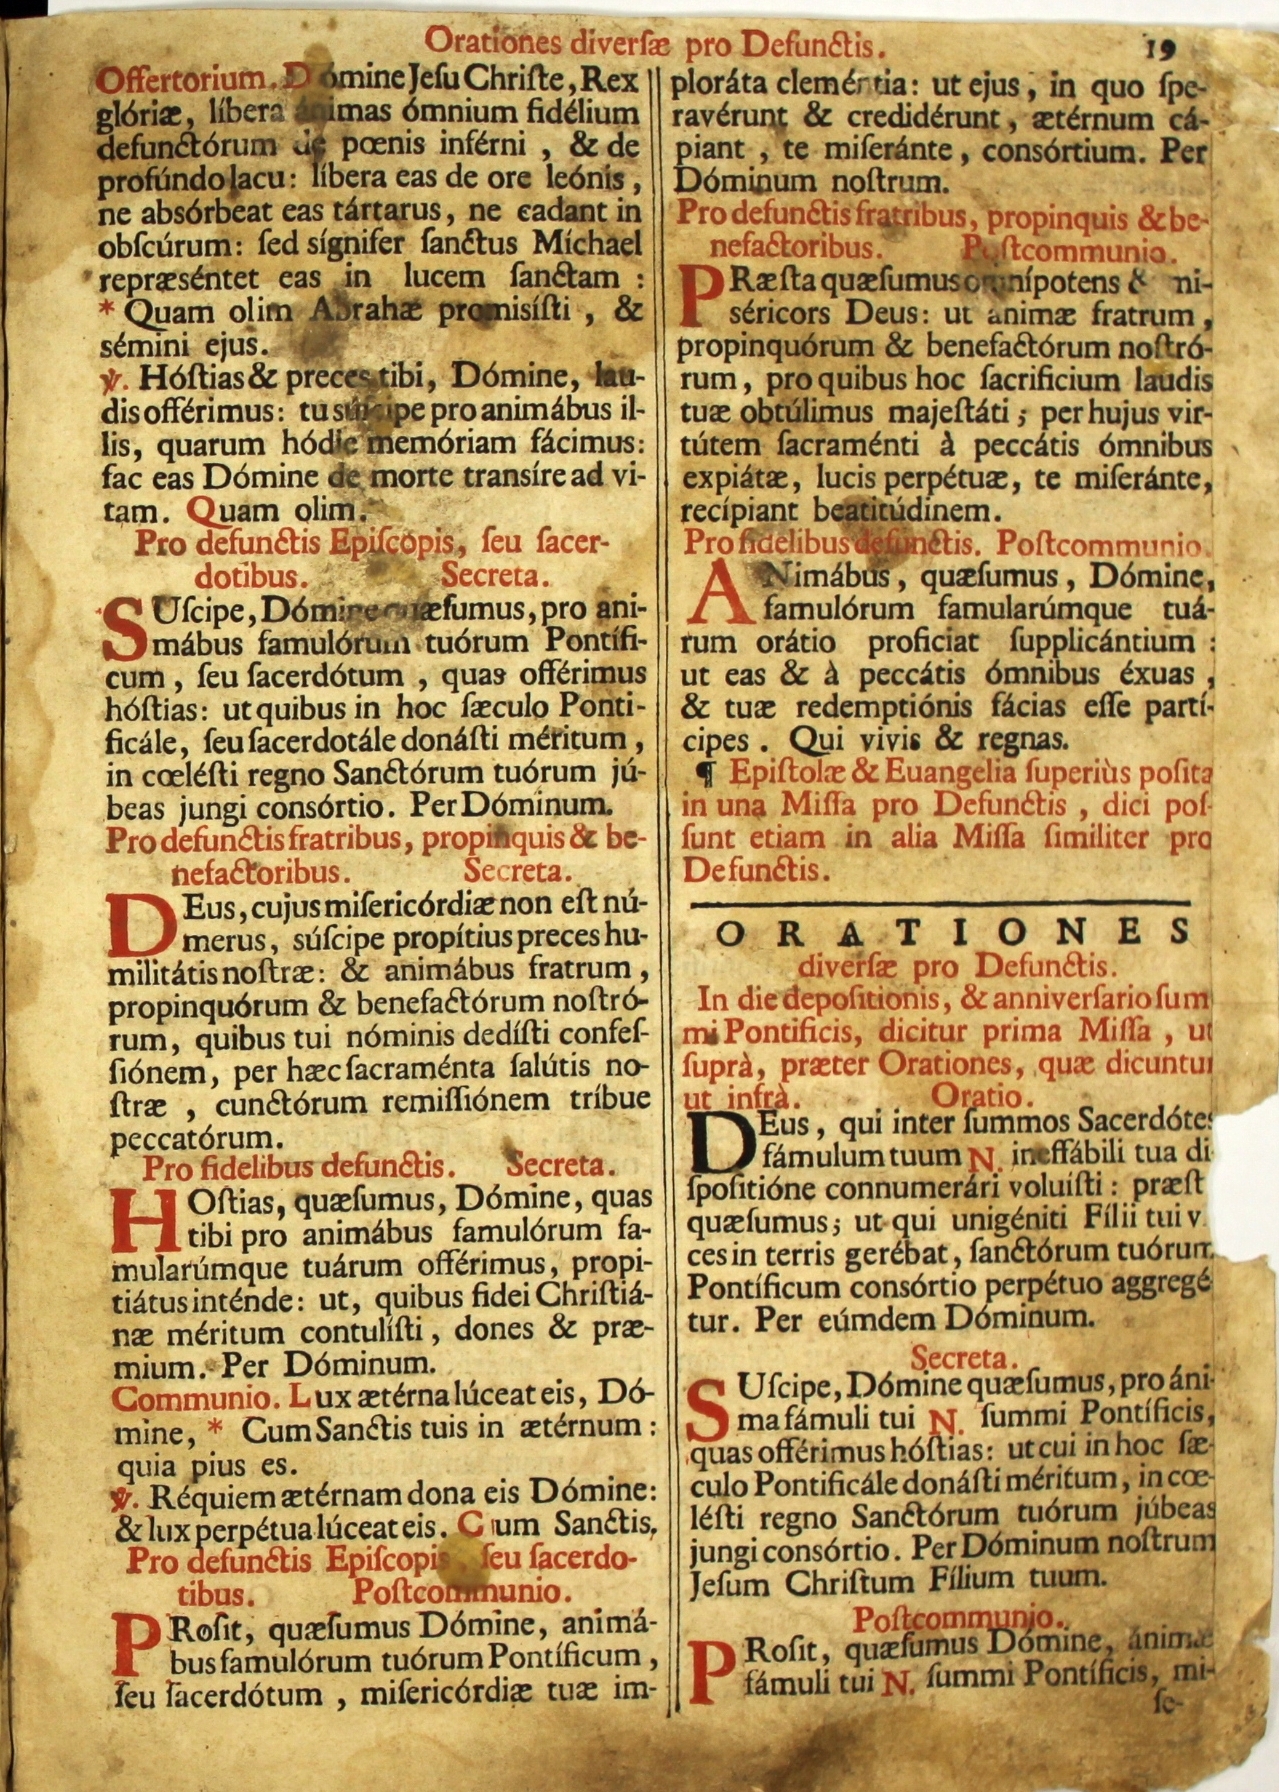 Orationes diversæ pro Defunctis. 19
Offertorium. Dómine Jesu Christe, Rex
glóriæ, líbera ánimas ómnium fidélium
defunctórum de pœnis inférni, & de
profúndo lacu: líbera eas de ore leónis,
ne absórbeat eas tártarus, ne cadant in
obscúrum: sed sígnifer sanctus Míchael
repræséntet eas in lucem sanctam:
* Quam olim Abrahæ promisísti, &
sémini ejus.
℣. Hóstias & preces tibi, Dómine, lau-
dis offérimus: tu súscipe pro animábus il-
lis, quarum hódie memóriam fácimus:
fac eas Dómine de morte transíre ad vi-
tam. Quam olim.
Pro defunctis Episcopis, seu sacer-
dotibus. Secreta.
SUscipe, Dómine quæsumus, pro ani-
mábus famulórum tuórum Pontífi-
cum, seu sacerdótum, quas offérimus
hóstias: ut quibus in hoc sæculo Ponti-
ficále, seu sacerdotále donásti méritum,
in cœlésti regno Sanctórum tuórum jú-
beas jungi consórtio. Per Dóminum.
Pro defunctis fratribus, propinquis & be-
nefactoribus. Secreta.
DEus, cujus misericórdiæ non est nú-
merus, súscipe propítius preces hu-
militátis nostræ: & animábus fratrum,
propinquórum & benefactórum nostró-
rum, quibus tui nóminis dedísti confes-
siónem, per hæc sacraménta salútis no-
stræ, cunctórum remissiónem tríbue
peccatórum.
Pro fidelibus defunctis. Secreta.
HOstias, quæsumus, Dómine, quas
tibi pro animábus famulórum fa-
mularúmque tuárum offérimus, propi-
tiátus inténde: ut, quibus fidei Christiá-
næ méritum contulísti, dones & præ-
mium. Per Dóminum.
Communio. Lux ætérna lúceat eis, Dó-
mine, * Cum Sanctis tuis in ætérnum:
quia pius es.
℣. Réquiem ætérnam dona eis Dómine:
& lux perpétua lúceat eis. Cum Sanctis.
Pro defunctis Episcopis seu sacerdo-
tibus. Postcommunio.
PRosit, quæsumus Dómine, animá-
bus famulórum tuórum Pontíficum,
seu sacerdótum, misericórdiæ tuæ im-
ploráta cleméntia: ut ejus, in quo spe-
ravérunt & credidérunt, ætérnum cá-
piant, te miseránte, consórtium. Per
Dóminum nostrum.
Pro defunctis fratribus, propinquis & be-
nefactoribus. Postcommunio.
PRæsta quæsumus omnípotens & mi-
séricors Deus: ut animæ fratrum,
propinquórum & benefactórum nostró-
rum, pro quibus hoc sacrificium laudis
tuæ obtúlimus majestáti; per hujus vir-
tútem sacraménti à peccátis ómnibus
expiátæ, lucis perpétuæ, te miseránte,
recípiant beatitúdinem.
Pro fidelibus defunctis. Postcommunio.
ANimábus, quæsumus, Dómine,
famulórum famularúmque tuá-
rum orátio proficiat supplicántium:
ut eas & à peccátis ómnibus éxuas,
& tuæ redemptiónis fácias esse partí-
cipes. Qui vivis & regnas.
¶ Epistolæ & Euangelia superiùs posita
in una Missa pro Defunctis, dici pos-
sunt etiam in alia Missa similiter pro
Defunctis.
ORATIONES
diversæ pro Defunctis.
In die depositionis, & anniversario sum
mi Pontificis, dicitur prima Missa, ut
suprà, præter Orationes, quæ dicuntur
ut infrà. Oratio.
DEus, qui inter summos Sacerdótes
fámulum tuum N. ineffábili tua di-
spositióne connumerári voluísti: præst
quæsumus; ut qui unigéniti Fílii tui v
ces in terris gerébat, sanctórum tuórum
Pontíficum consórtio perpétuo aggregé
tur. Per eúmdem Dóminum.
Secreta.
SUscipe, Dómine quæsumus, pro áni-
ma fámuli tui N. summi Pontíficis,
quas offérimus hóstias: ut cui in hoc sæ-
culo Pontificále donásti méritum, in cœ-
lésti regno Sanctórum tuórum júbeas
jungi consórtio. Per Dóminum nostrum
Jesum Christum Fílium tuum.
Postcommunio.
PRosit, quæsumus Dómine, ánimæ
fámuli tui N. summi Pontíficis, mi-
se-